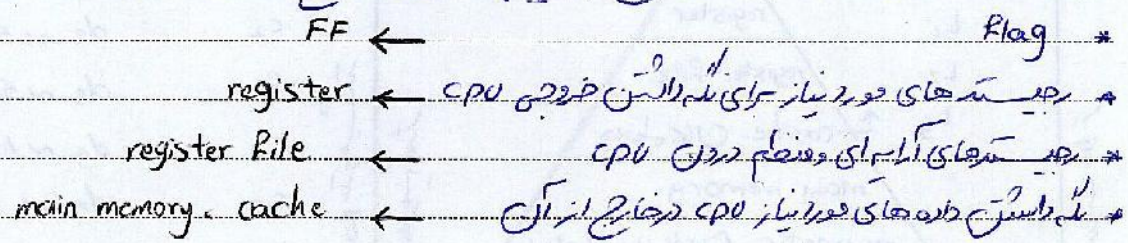 * Flag ← FF
* رجیسترهای مورد نیاز برای نگه داشتن خروجی CPU ← register
* رجیسترهای آرایه‌ای و منظم درون CPU ← register file
* نگه داشتن داده‌های مورد نیاز CPU در خارج از آن ← main memory. cache